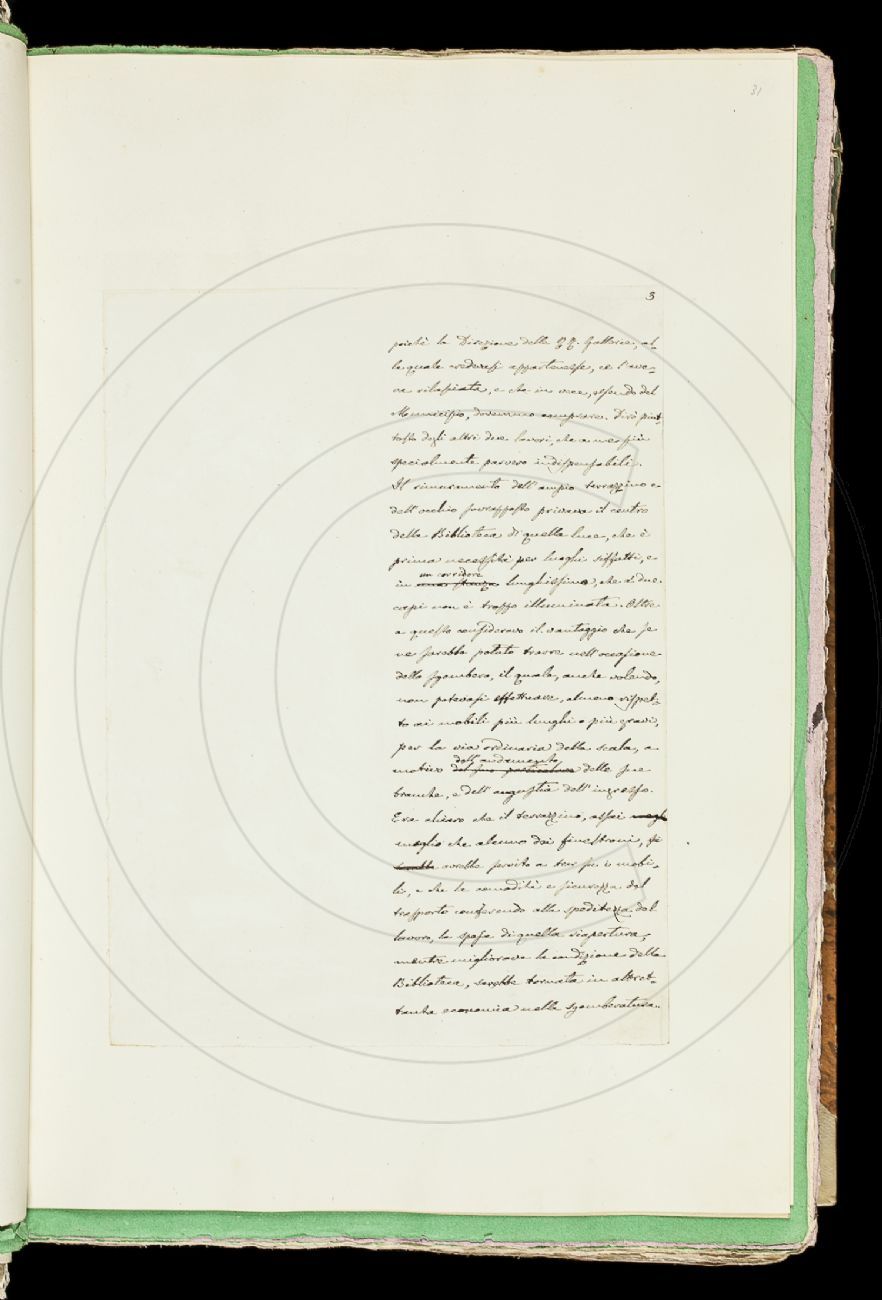 31
3
poichè la Direzione delle RR. Gallerie, al-
la quale credevasi appartenesse, ce l'ave-
va rilasciata, e che in vece, essendo del
Municipio, dovemmo comprare. Dirò piut-
tosto degli altri due lavori, che a me più
specialmente parvero indispensabili.
Il rimuramento dell'ampio terrazzino e
dell'occhio sovrapposto privava il centro
della Biblioteca di quella luce, che è
prima necessità per luoghi siffatti, e
un corridore
in una stanza lunghissimo, che a' due
capi non è troppo illuminata. Oltre
a questo consideravo il vantaggio che se
ne sarebbe potuto trarre nell'occasione
dello sgombero, il quale, anche volendo,
non potevasi effettuare, almeno rispet-
to ai mobili più lunghi e più gravi,
per la via ordinaria della scala, a
dell'andamento
motivo del suo particolare delle sue
branche, e dell'angustia dell'ingresso.
Era chiaro che il terrazzino, assai megl
meglio che alcuno dei finestroni, si
sarebbe avrebbe servito a tirar su i mobi-
li, e che la comodità e sicurezza del
trasporto conferendo alla speditezza del
lavoro, la spesa di quella riapertura,
mentre migliorava la condizione della
Biblioteca, sarebbe tornata in altret-
tanta economia nella sgomberatura.